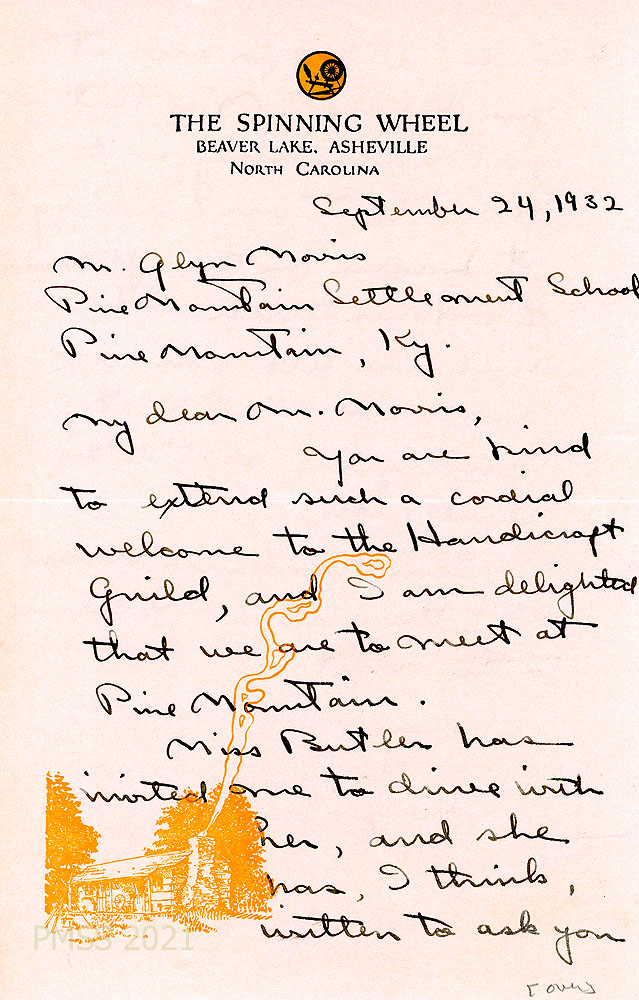 THE SPINNING WHEEL
BEAVER LAKE, ASHEVILLE
NORTH CAROLINA
September 24, 1932
Mr. Glyn Morris
Pine Mountain Settlement School
Pine Mountain, Ky.
My dear Mr. Morris,
You are kind
to extend such a cordial
welcome to the Handicraft
Guild, and I am delighted
that we are to meet at
Pine Mountain.
Miss Butler has
invited me to drive with
her, and she
has, I think,
written to ask you
PMSS 2021
over